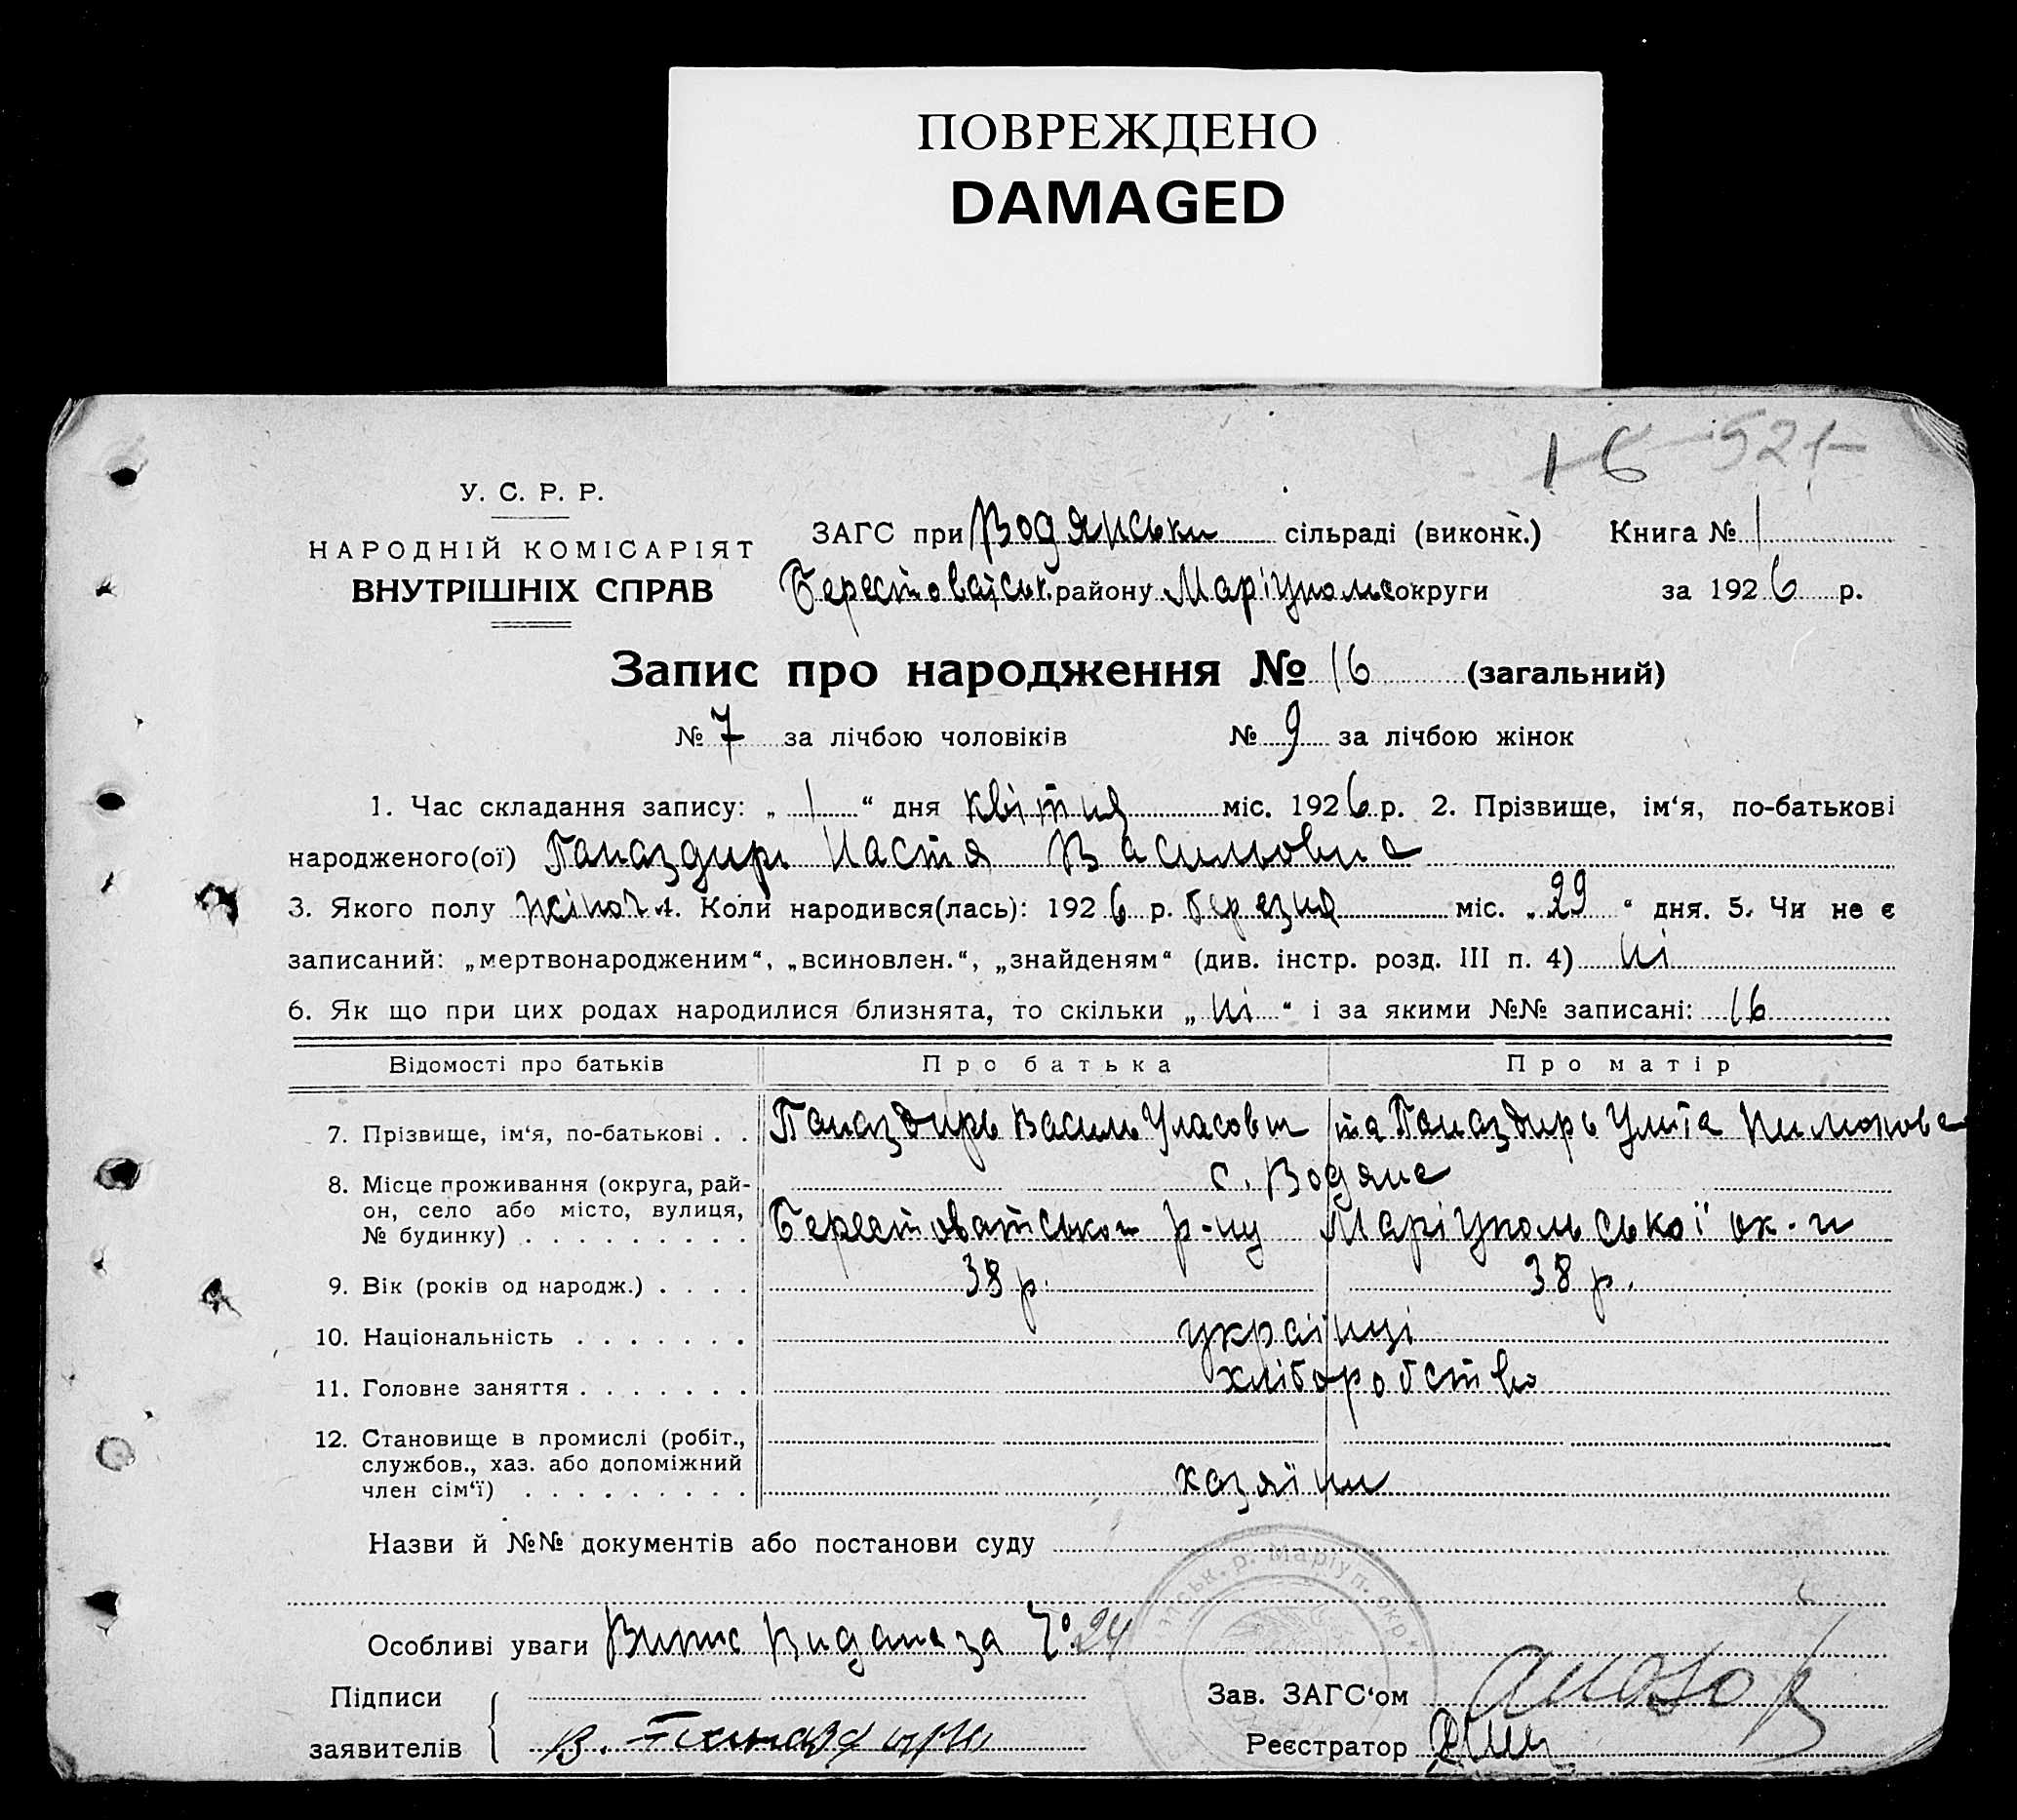 ПОВРЕЖДЕНО
DAMAGED
16 521
У. С. Р. Р.
НАРОДНІЙ КОМІСАРІЯТ
ВНУТРІШНІХ СПРАВ
ЗАГС при Водянськи сільраді (виконк.) Книга № 1
Берестоватськ. району Маріупольс округи за 1926 р.
Запис про народження № 16 (загальний)
№ 7 за лічбою чоловіків № 9 за лічбою жінок
1. Час складання запису: „ 1 “ дня квітня міс. 1926 р. 2. Прізвище, ім‘я, по-батькові
народженого(ої) Паназдирь Настя Васильовна
3. Якого полу жіноч 4. Коли народився(лась): 1926 р. березня міс. „ 29 “ дня. 5. Чи не є
записаний: „мертвонародженим“, „всиновлен.“, „знайденям“ (див. інстр. розд. III п. 4) ні
6. Як що при цих родах народилися близнята, то скільки „ ні “ і за якими №№ записані: 16
Відомості про батьків Про батька Про матір
7. Прізвище, ім‘я, по-батькові . . Паназдирь Василь Уласович та Паназдирь Улита Пилипова
8. Місце проживання (округа, рай-
он, село або місто, вулиця,
№ будинку) . . . . . . . . .
с. Водяне
Берестоватського р-ну Маріупольської ок-и
9. Вік (років од народж.) . . . . 38 р. 38 р.
10. Національність . . . . . . . українці
11. Головне заняття . . . . . . . хліборобство
12. Становище в промислі (робіт.,
службов., хаз. або допоміжний
член сім‘ї) . . . . . . . . . хазяїни
Назви й №№ документів або постанови суду
атськ. р. Маріуп. окр.
Особливі уваги Випис видана за № 24
Підписи
заявителів В. Паназдирь
Зав. ЗАГС‘ом
Реєстратор